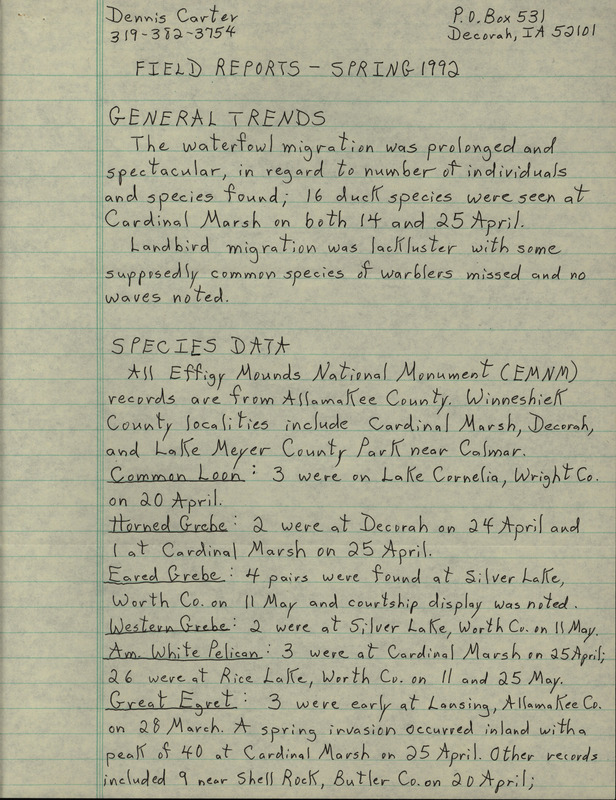 Dennis Carter
319-382-3754
P.O. Box 531
Decorah, IA 52101
FIELD REPORTS - SPRING 1992
GENERAL TRENDS
The waterfowl migration was prolonged and
spectacular, in regard to number of individuals
and species found; 16 duck species were seen at
Cardinal Marsh on both 14 and 25 April.
Landbird migration was lackluster with some
supposedly common species of warblers missed and no
waves noted.
SPECIES DATA
All Effigy Mounds National Monument (EMNM)
records are from Allamakee County. Winneshiek
County localities include Cardinal Marsh, Decorah,
and Lake Meyer County Park near Calmar.
Common Loon: 3 were on Lake Cornelia, Wright Co.
on 20 April.
Horned Grebe: 2 were at Decorah on 24 April and
1 at Cardinal Marsh on 25 April.
Eared Grebe: 4 pairs were found at Silver Lake,
Worth Co. on 11 May and courtship display was noted.
Western Grebe: 2 were at Silver Lake, Worth Co. on 11 May.
Am. White Pelican: 3 were at Cardinal Marsh on 25 April;
26 were at Rice Lake, Worth Co. on 11 and 25 May.
Great Egret: 3 were early at Lansing, Allamakee Co.
on 28 March. A spring invasion occurred inland with a
peak of 40 at Cardinal Marsh on 25 April. Other records
included 9 near Shell Rock, Butler Co. on 20 April;